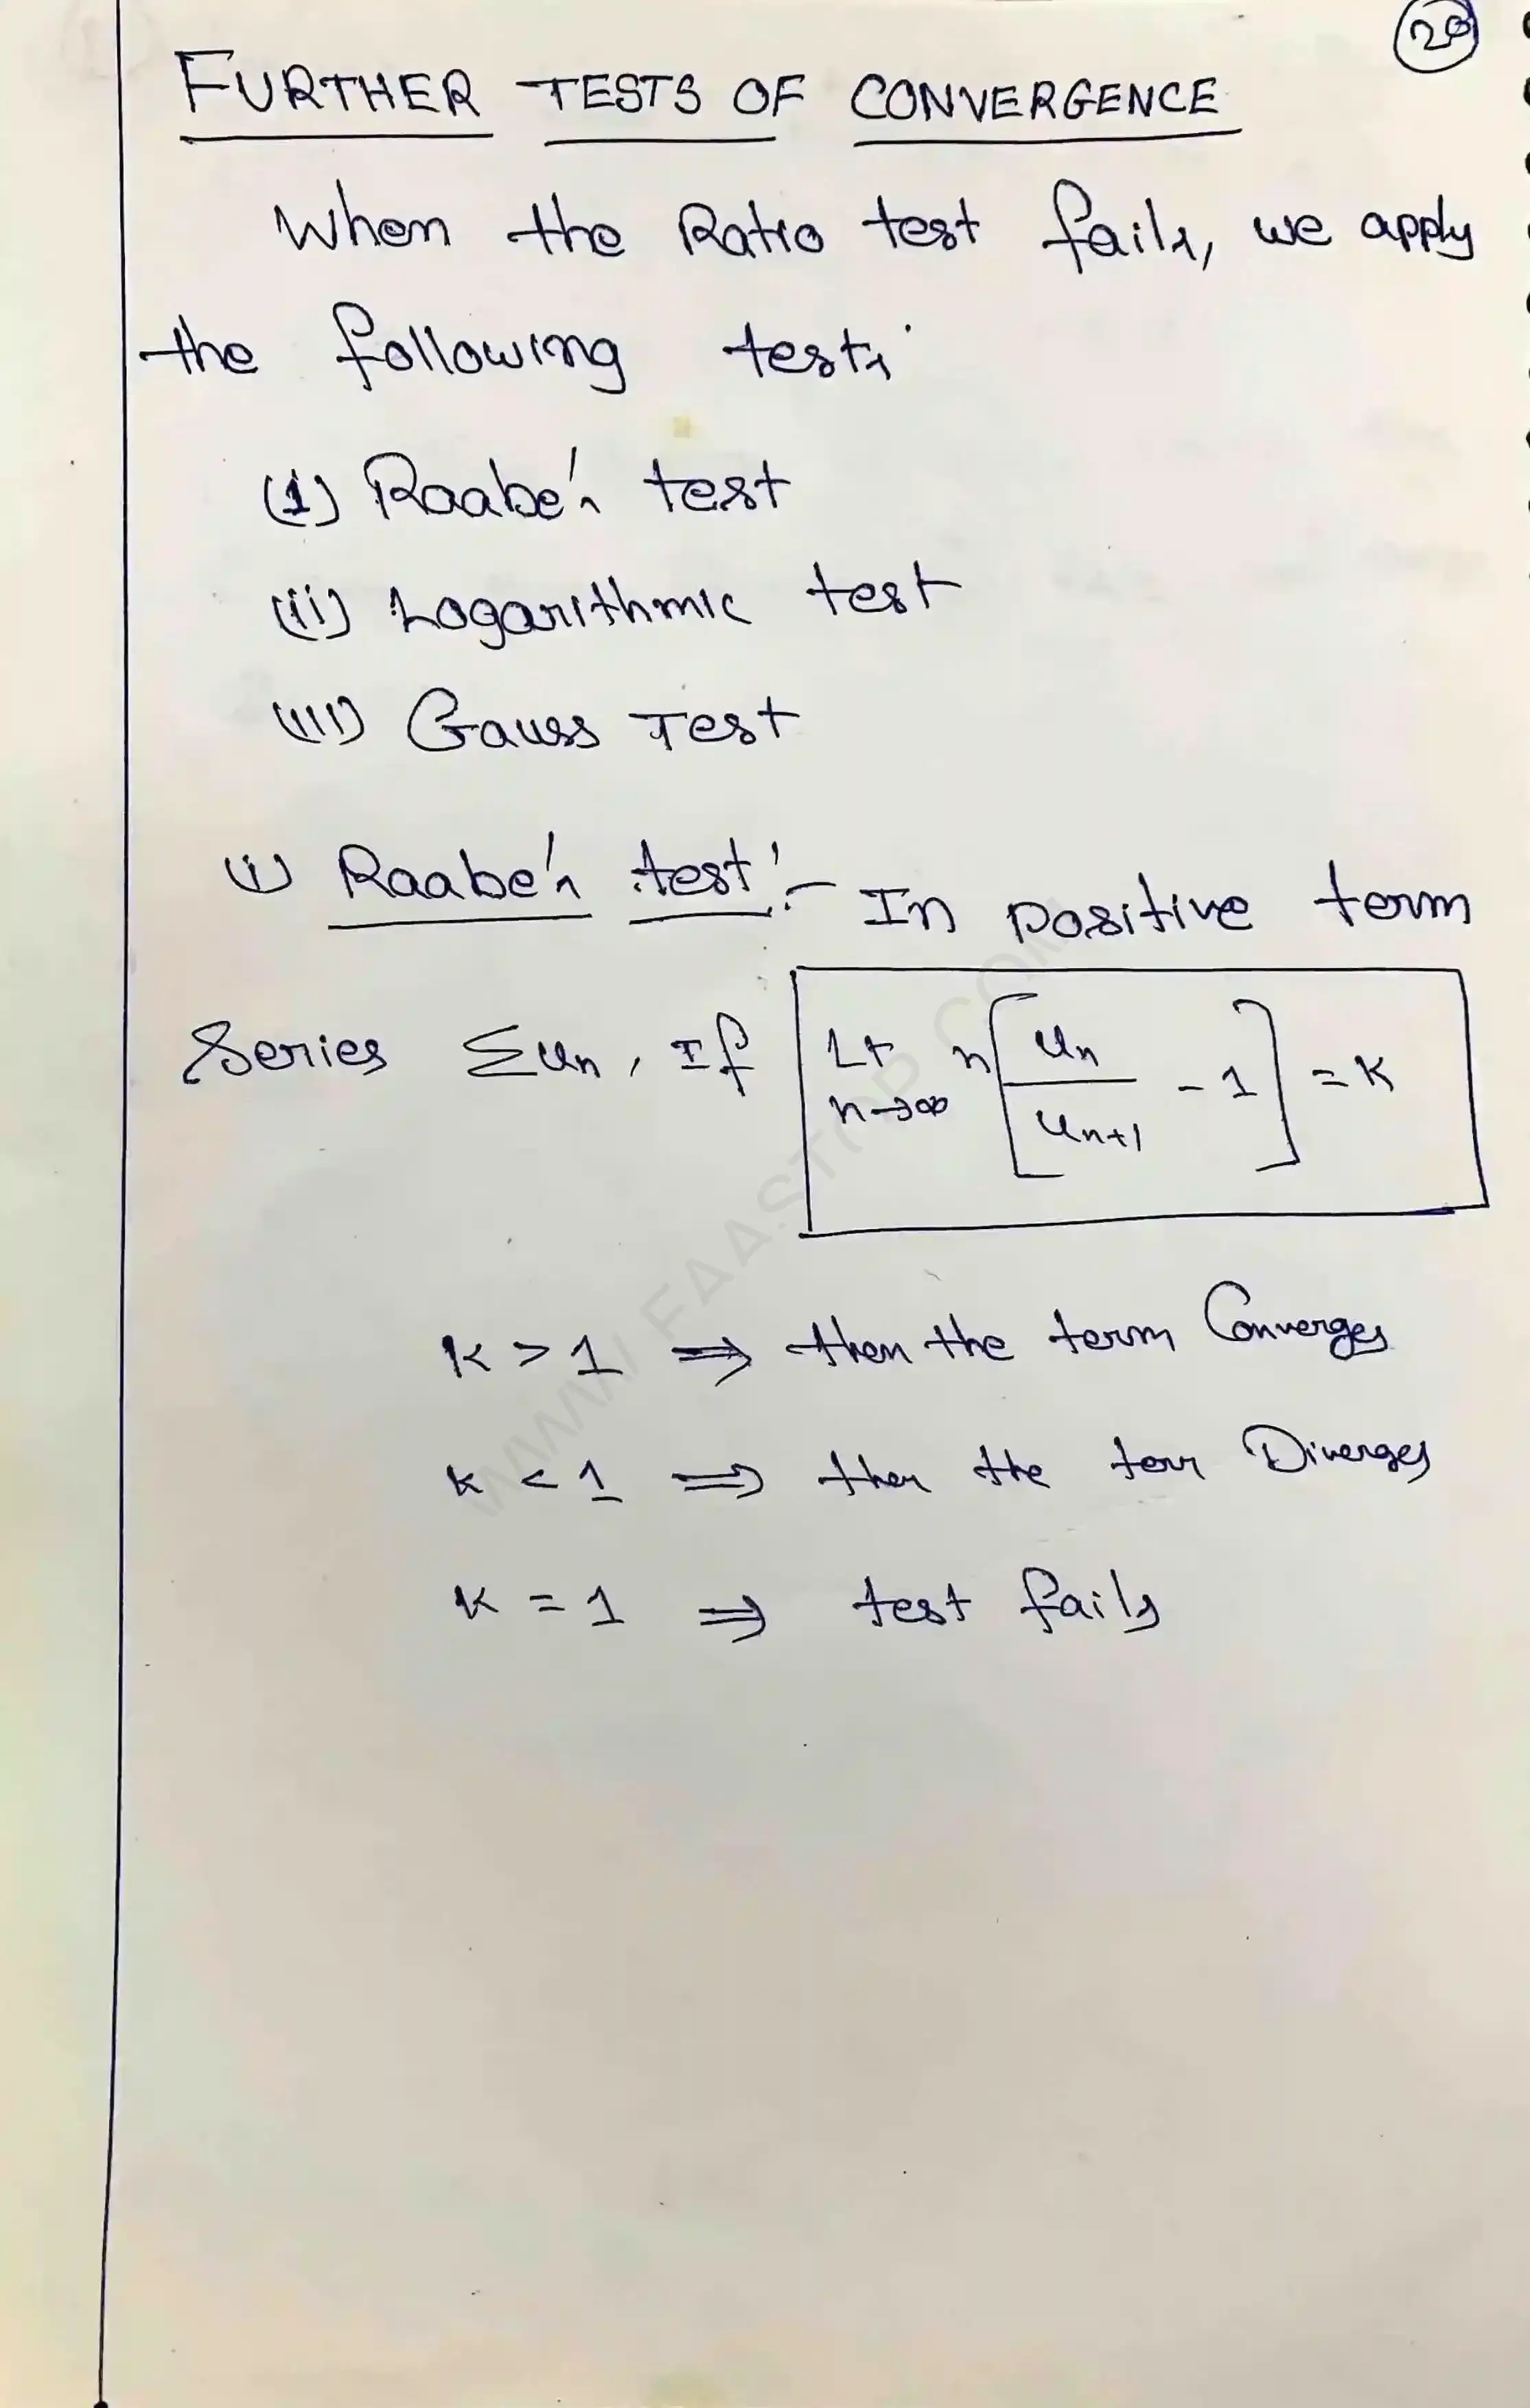 20
FURTHER TESTS OF CONVERGENCE
When the Ratio test fails, we apply
the following tests
(i) Raabe's test
(ii) Logarithmic test
(iii) Gauss Test
(i) Raabe's test :- In positive term
Series Σun, If Lt n→∞ n[un/un+1 - 1] = K
K > 1 ⇒ then the term Converges
K < 1 ⇒ then the term Diverges
K = 1 ⇒ test fails
WWW.FAASTOP.COM